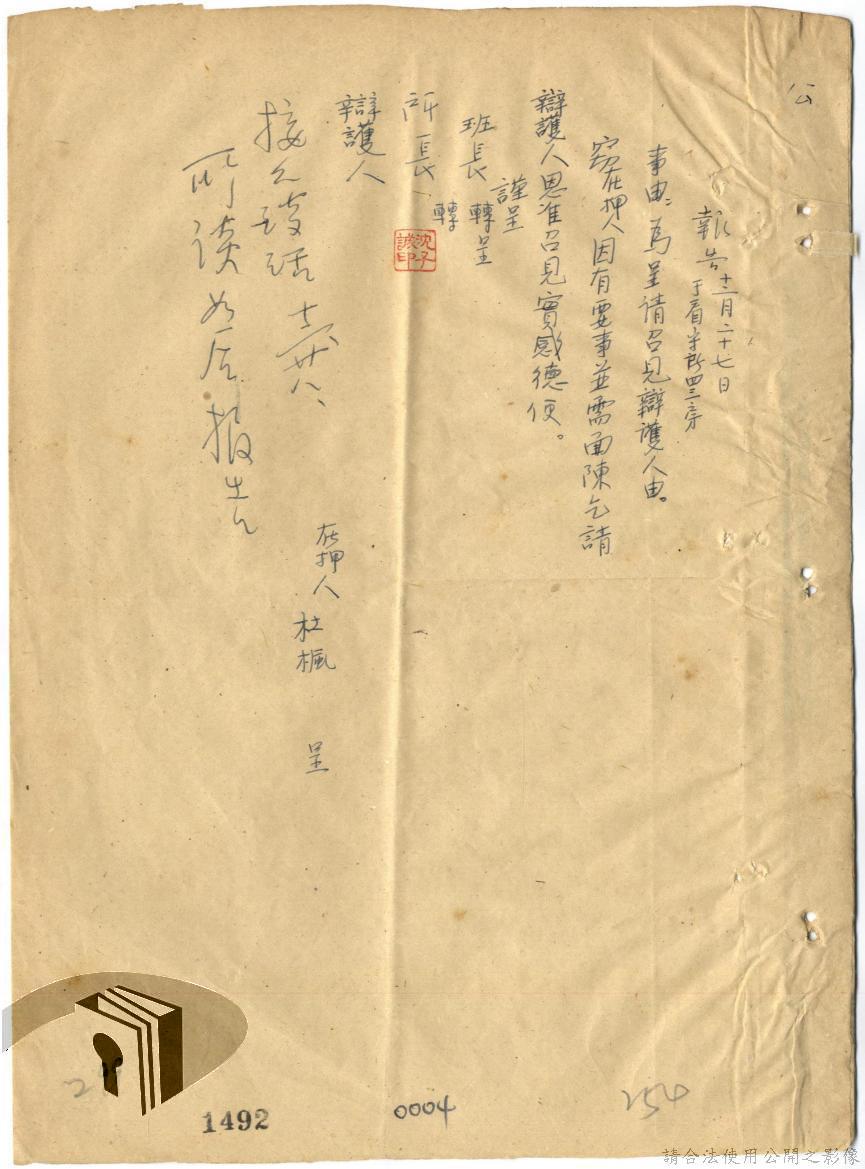 公
報告 十二月二十七日
于看守所四三房
事由:為呈請召見辯護人由。
竊在押人因有要事並需面陳乞請
辯護人恩准召見實感德便。
謹呈
班長 轉呈
所長 轉
辯護人
沈子誠印
在押人 杜楓 呈
所談如后報告
1492
0004
254
請合法使用公開之影像